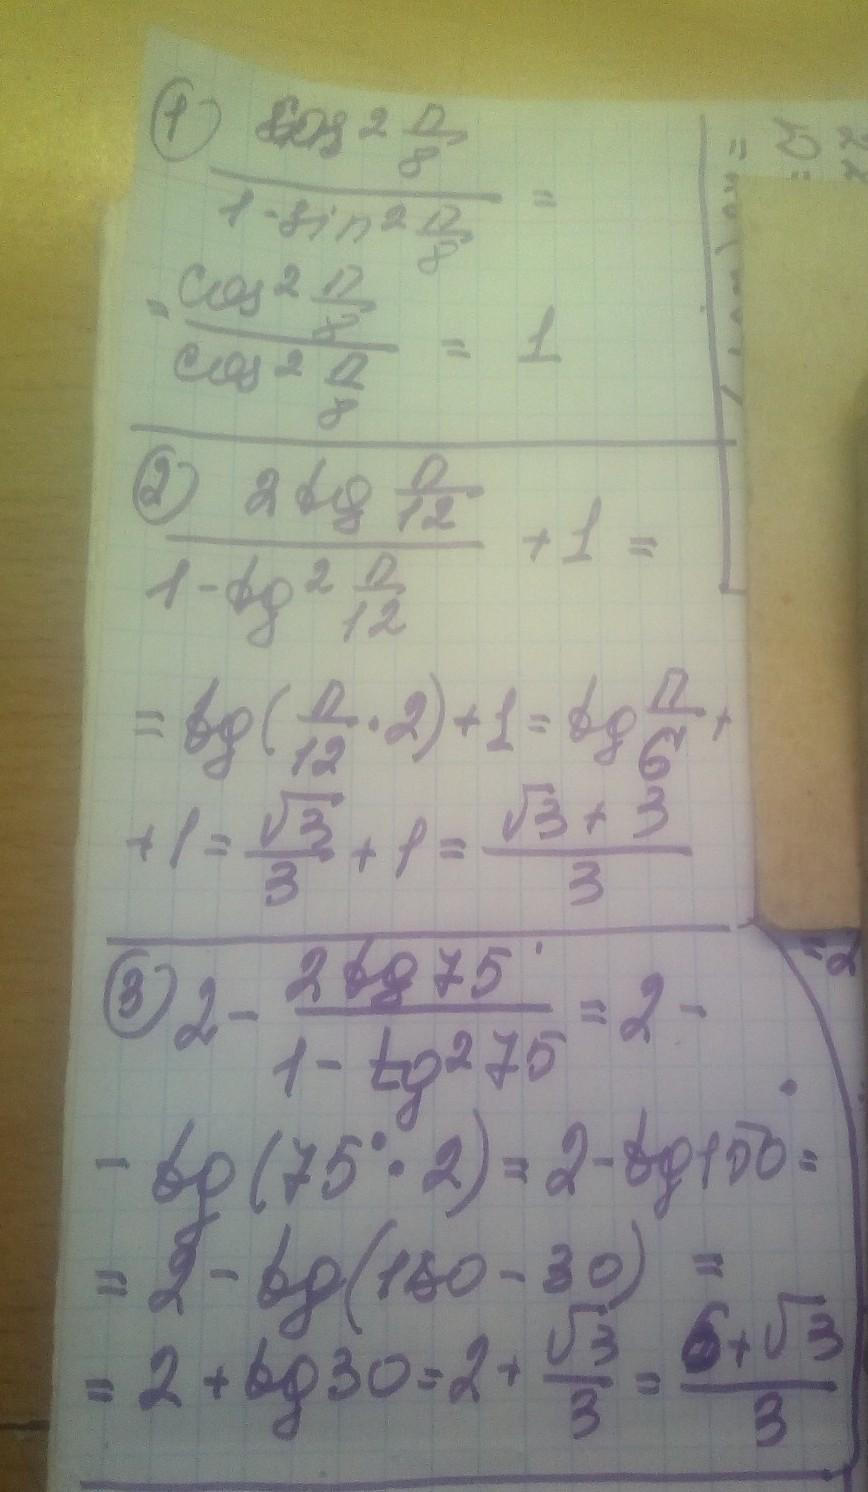 ① cos² π/8 / (1 - sin² π/8) =
= cos² π/8 / cos² π/8 = 1
② 2 tg π/12 / (1 - tg² π/12) + 1 =
= tg(π/12 · 2) + 1 = tg π/6 +
+ 1 = √3/3 + 1 = (√3 + 3)/3
③ 2 - 2 tg 75° / (1 - tg² 75) = 2 -
- tg(75° · 2) = 2 - tg 150° =
= 2 - tg(180 - 30) =
= 2 + tg 30 = 2 + √3/3 = (6 + √3)/3
=2